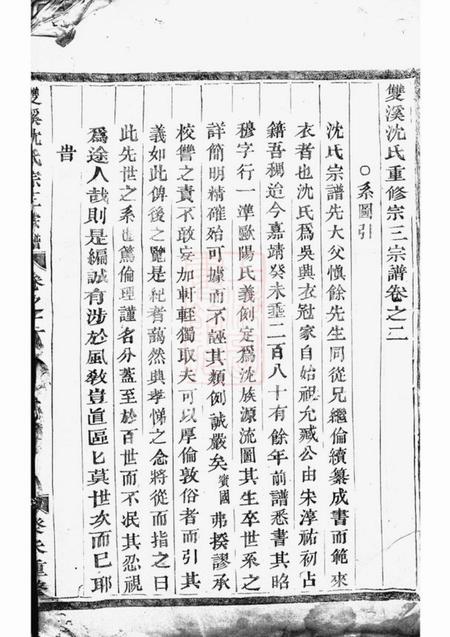 雙溪沈氏重修宗三宗譜卷之二
○系圖引
沈氏宗譜先大父懷餘先生同從兄繼倫續纂成書而範來
衣者也沈氏爲吳興衣冠家自始祖允臧公由宋淳祐初占
籍吾稠迨今嘉靖癸未垂二百八十有餘年前譜悉書其昭
穆字行一準歐陽氏義例定爲沈族源流圖其生卒世系之
詳簡明精確始可據而不誣其類例誠嚴矣賓國弗揆謬承
校讐之責不敢妄加軒輊獨取夫可以厚倫敦俗者而引其
義如此俾後之覽是紀者藹然興孝悌之念將從而指之曰
此先世之系也篤倫理謹名分蓋至於百世而不泯其忍視
爲途人哉則是編誠有涉於風敎豈直區區莫世次而巳耶
昔
雙溪沈氏宗三宗譜 卷之二